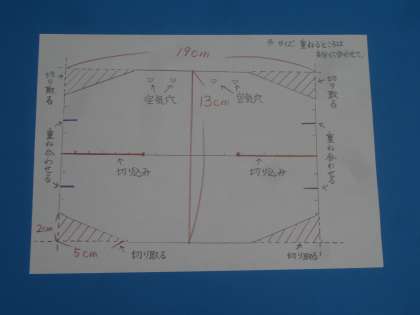 19cm
※ サイズ 重ねるところは
自分に合わせて。
切り取る
切り取る
空気穴
13cm
空気穴
重ね合わせる
重ね合わせる
切り込み
切り込み
2cm
5cm
切り取る
切り取る